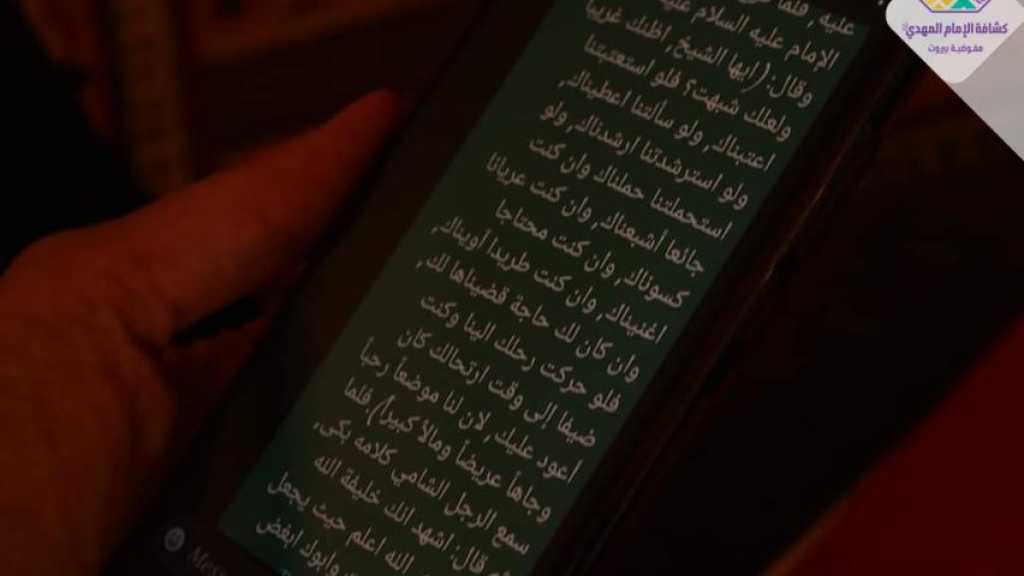 عليه , فلما
الإمام عليه السلام عليه
وقال: (ايها الشيخ, اظنك غريبا
ولعلك شبهت؟ فلو استعتبتنا
اعتبناك, ولو سألتنا اعطيناك,
ولو استرشدتنا ارشدناك, ولو
استحملتنا حملناك وان كنت
جائعا أشبعناك, وان كنت عريانا
كسوناك, وان كنت محتاجا
اغنيناك, وان كنت طريدا أويناك,
وان كان لك حاجة قضيناها لك,
فلو حركت رحلك الينا وكنت
ضيفا إلى وقت ارتحالك كان
اعود عليك, لان لنا موضعاً رحباً
وجاهاً عريضاً ومالاً كبيرا).فلما
سمع الرجل الشامي كلامه بكى,
قال: اشهد انك خليفة الله
الله اعلم حيث يجعل
وأبوك ابغض
Mess
كشافة الإمام المهدي
مفوضية بيروت